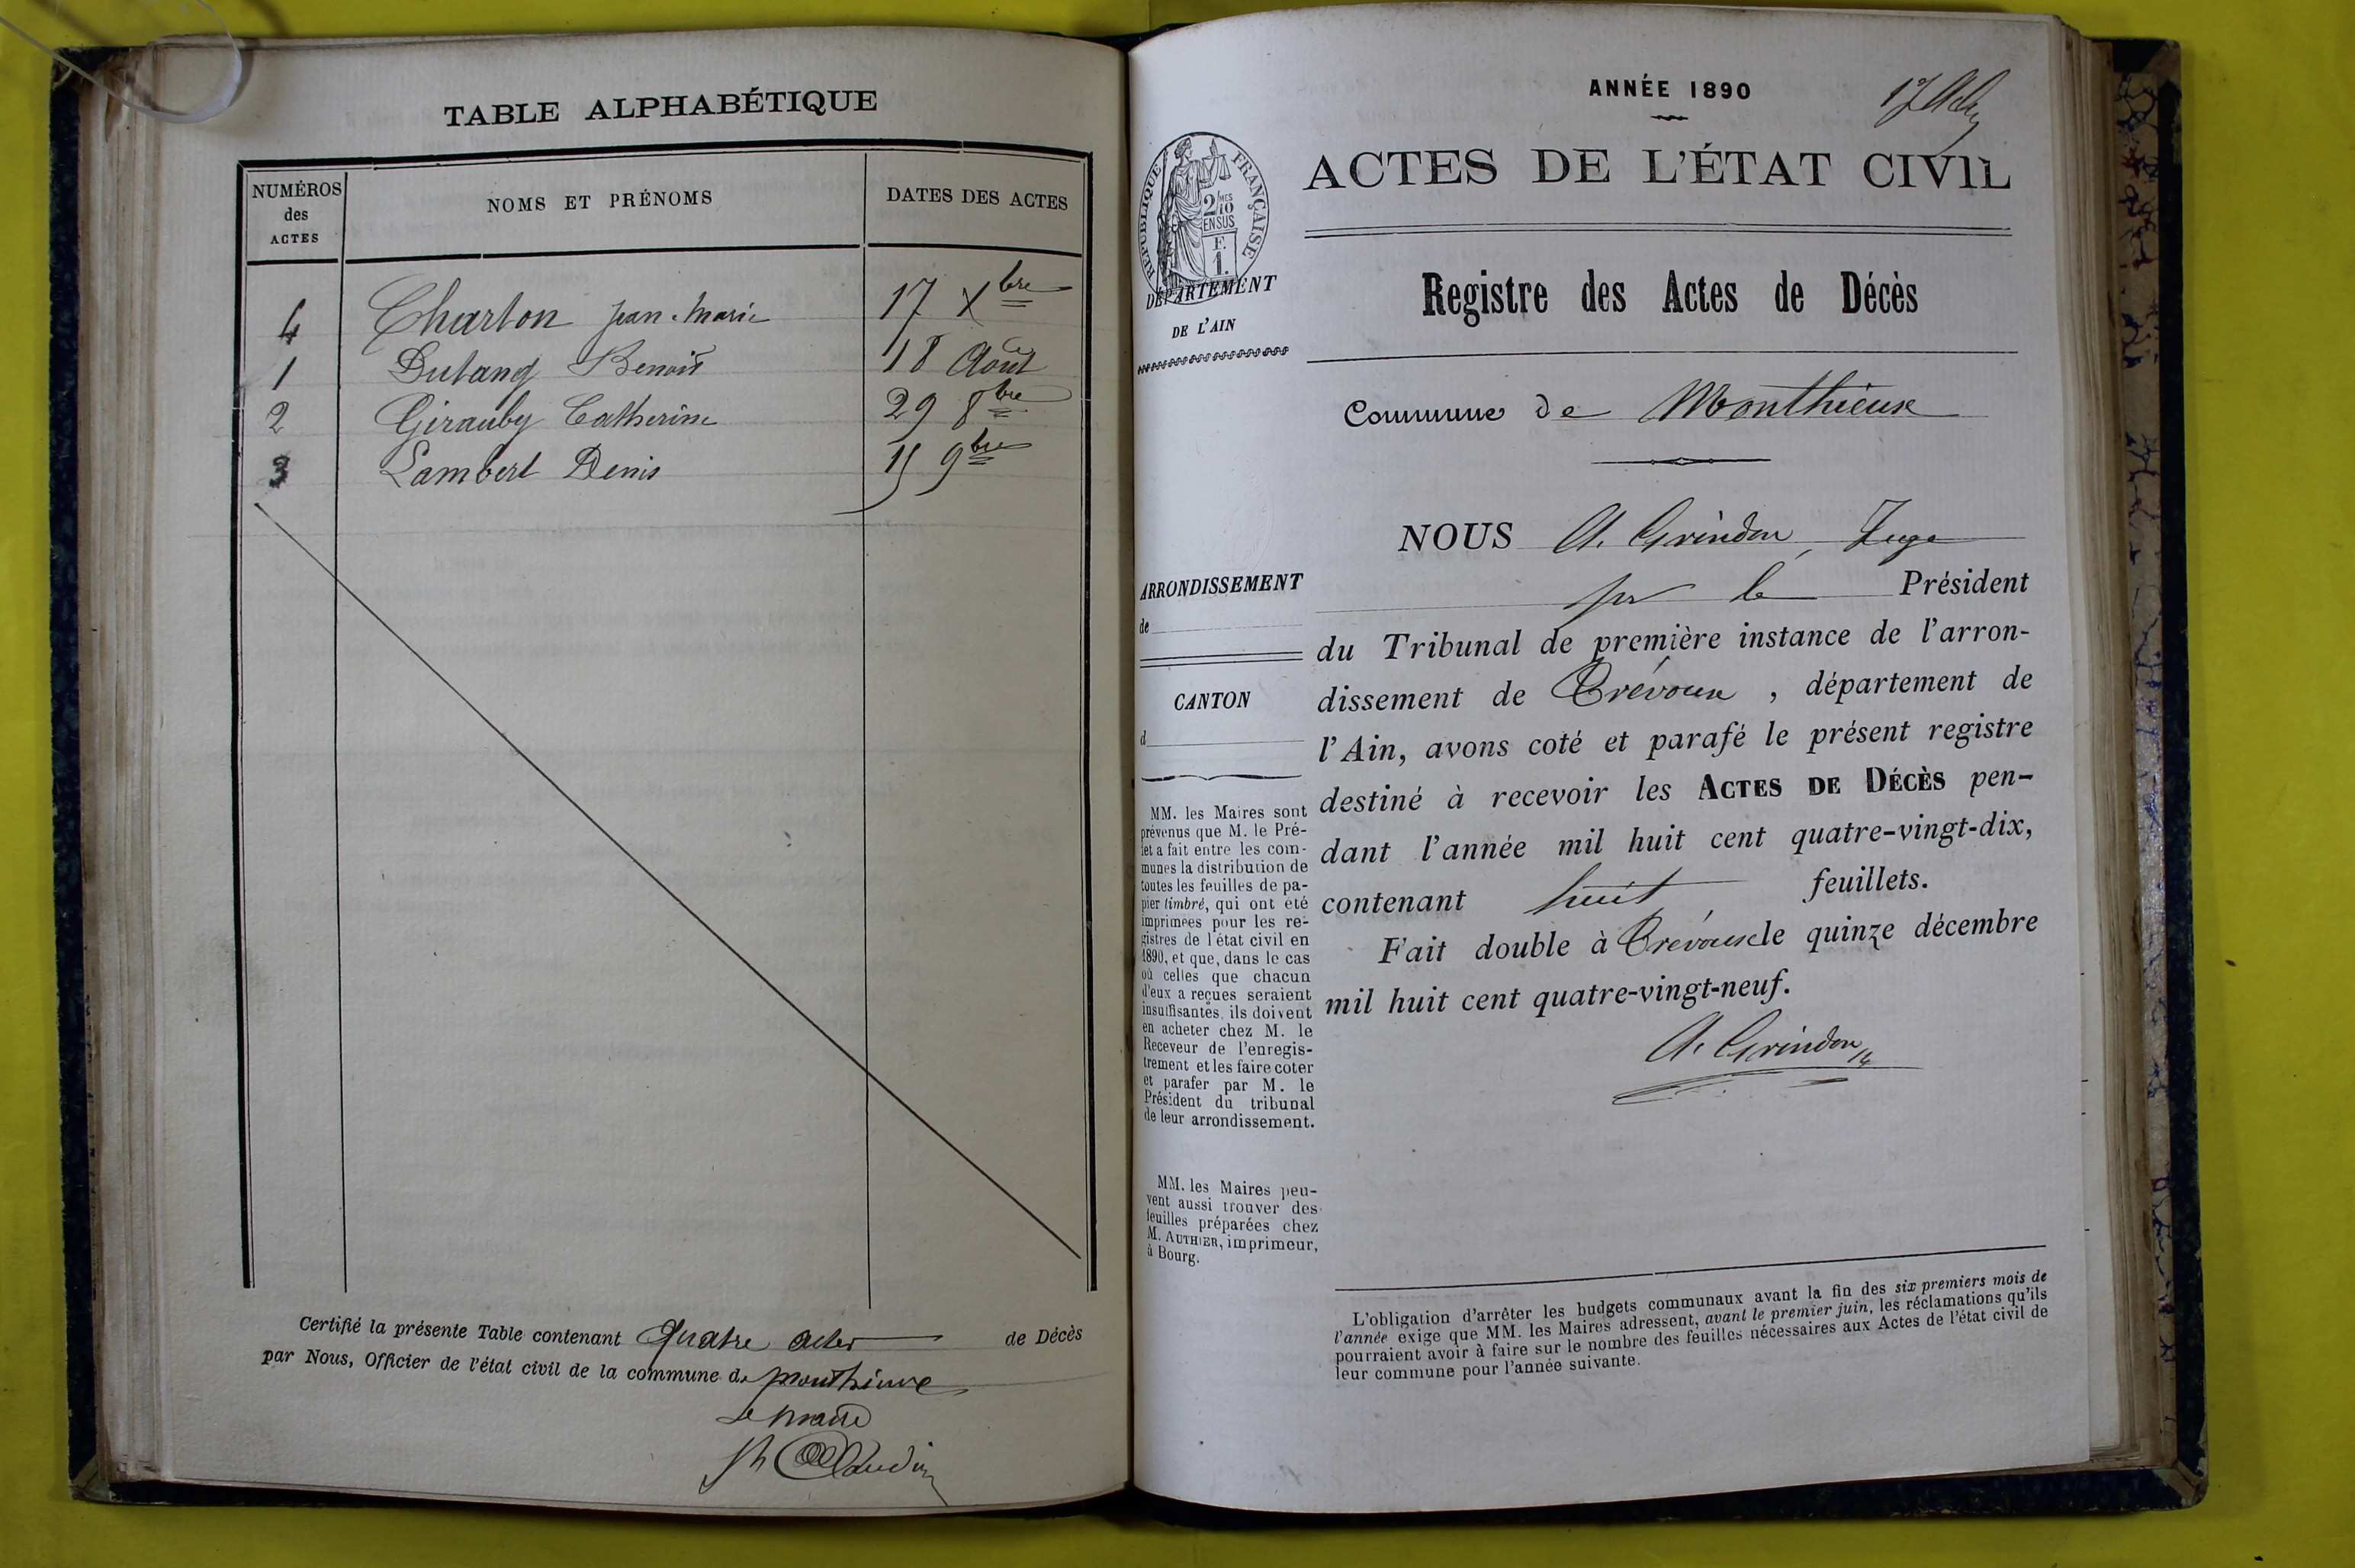 TABLE ALPHABÉTIQUE
NUMÉROS des ACTES
NOMS ET PRÉNOMS
DATES DES ACTES
4 Charlon Jean-Marie 17 Xbre
1 Dutang Benoit 18 Août
2 Girauby Catherine 29 8bre
3 Lambert Denis 15 9bre
Certifié la présente Table contenant quatre actes de Décès
par Nous, Officier de l'état civil de la commune de Monthieux
Le maire
ANNÉE 1890
ACTES DE L'ÉTAT CIVIL
RÉPUBLIQUE FRANÇAISE
2/10 MES
EN SUS
F.
1.
DÉPARTEMENT
DE L'AIN
Registre des Actes de Décès
Commune de Monthieux
NOUS A. Grindon, Juge
pr le Président
du Tribunal de première instance de l'arron-
dissement de Trévoux, département de
l'Ain, avons coté et parafé le présent registre
destiné à recevoir les ACTES DE DÉCÈS pen-
dant l'année mil huit cent quatre-vingt-dix,
contenant huit feuillets.
Fait double à Trévoux le quinze décembre
mil huit cent quatre-vingt-neuf.
A. Grindon
ARRONDISSEMENT
de
CANTON
d
MM. les Maires sont
prévenus que M. le Pré-
fet a fait entre les com-
munes la distribution de
toutes les feuilles de pa-
pier timbré, qui ont été
imprimées pour les re-
gistres de l'état civil en
1890, et que, dans le cas
où celles que chacun
d'eux a reçues seraient
insuffisantes, ils doivent
en acheter chez M. le
Receveur de l'enregis-
trement et les faire coter
et parafer par M. le
Président du tribunal
de leur arrondissement.
MM. les Maires peu-
vent aussi trouver des
feuilles préparées chez
M. AUTHIER, imprimeur,
à Bourg.
L'obligation d'arrêter les budgets communaux avant la fin des six premiers mois de
l'année exige que MM. les Maires adressent, avant le premier juin, les réclamations qu'ils
pourraient avoir à faire sur le nombre des feuilles nécessaires aux Actes de l'état civil de
leur commune pour l'année suivante.